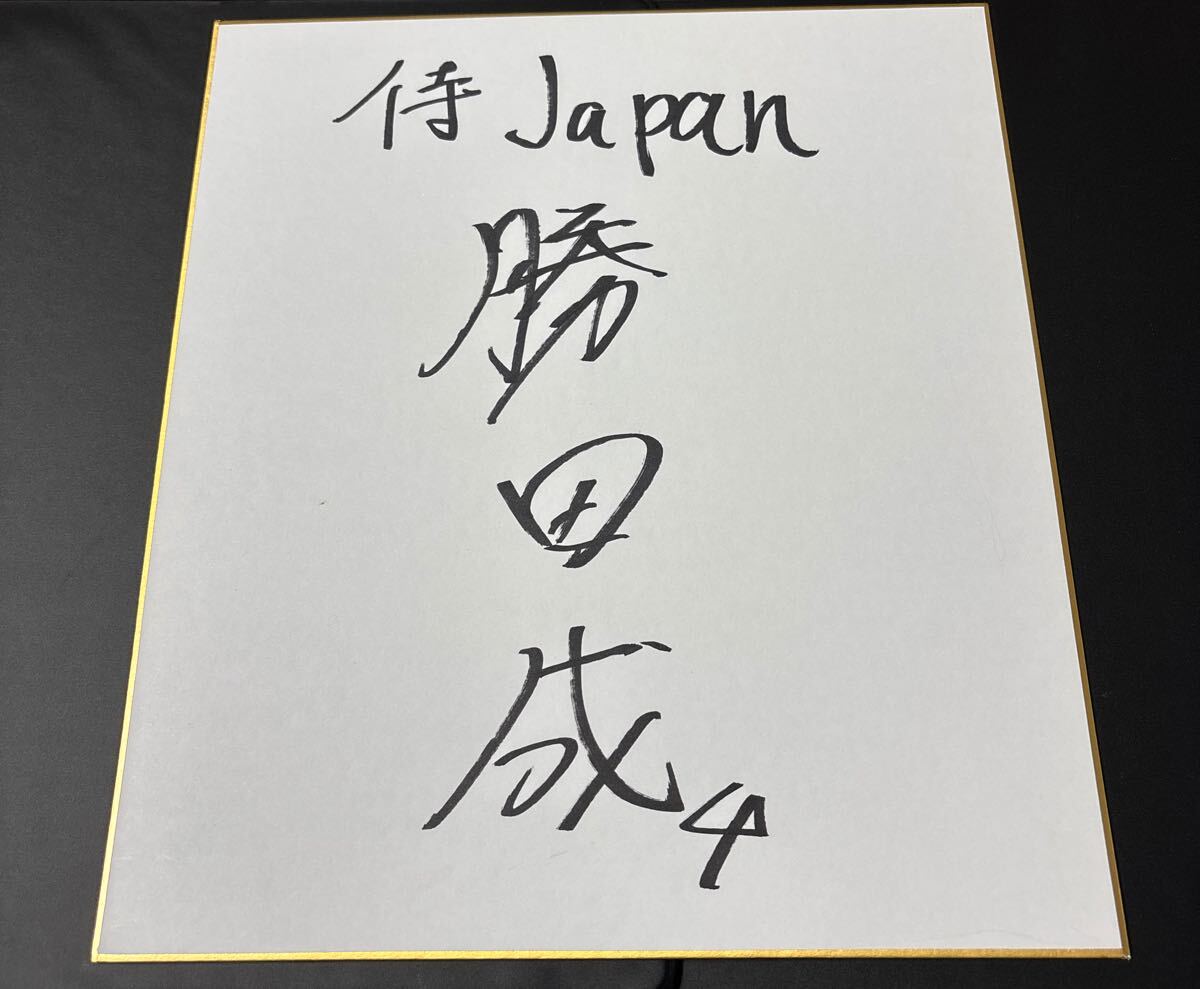 侍 Japan
勝田成
4